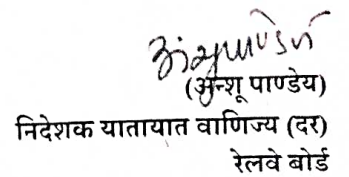 अंशु पाण्डेय
(अुन्शू पाण्डेय)
निदेशक यातायात वाणिज्य (दर)
रेलवे बोर्ड